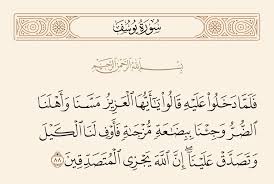 سُورَةُ يُوسُفَ
بِسْمِ اللَّهِ الرَّحْمَٰنِ الرَّحِيمِ
فَلَمَّا دَخَلُوا۟ عَلَيْهِ قَالُوا۟ يَٰٓأَيُّهَا ٱلْعَزِيزُ مَسَّنَا وَأَهْلَنَا
ٱلضُّرُّ وَجِئْنَا بِبِضَٰعَةٍ مُّزْجَىٰةٍ فَأَوْفِ لَنَا ٱلْكَيْلَ
وَتَصَدَّقْ عَلَيْنَآ ۖ إِنَّ ٱللَّهَ يَجْزِى ٱلْمُتَصَدِّقِينَ ٨٨